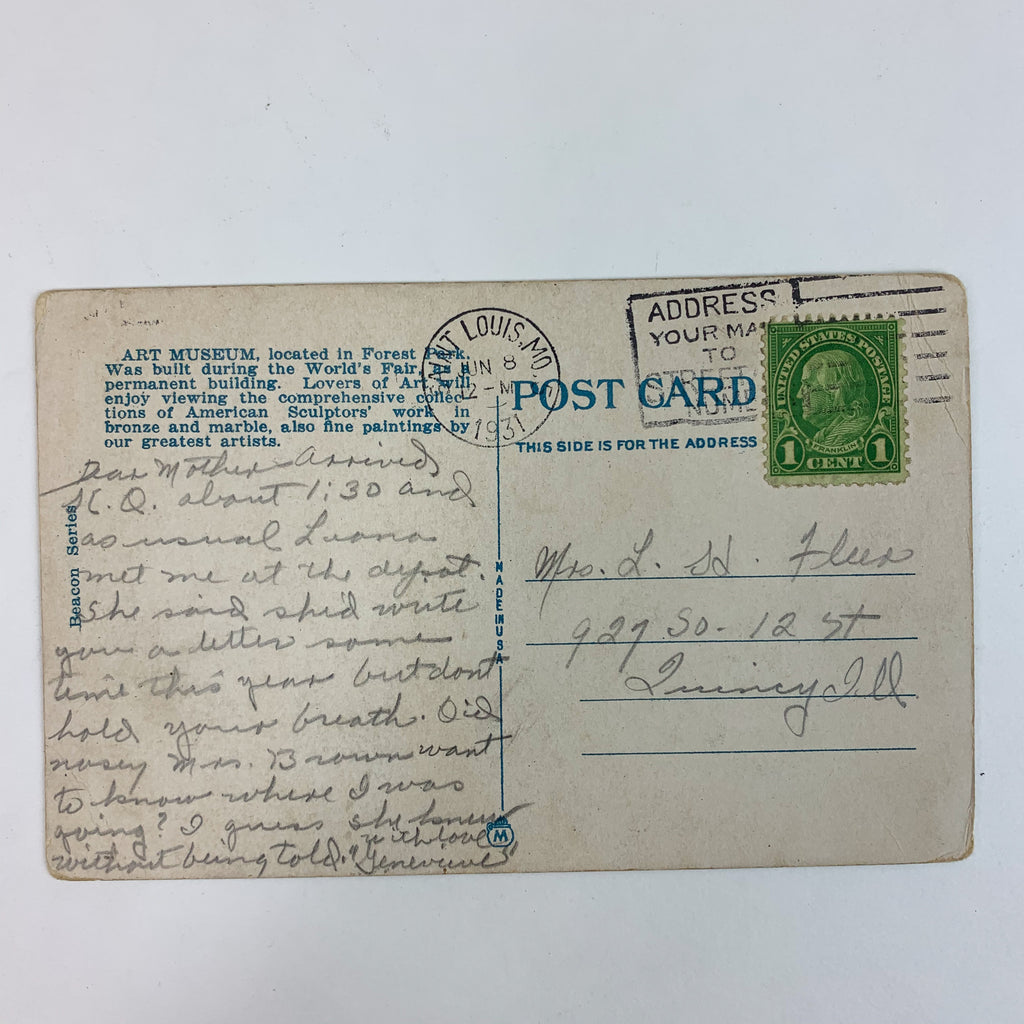 ART MUSEUM, located in Forest Park.
Was built during the World's Fair, as a
permanent building. Lovers of Art will
enjoy viewing the comprehensive collec-
tions of American Sculptors' work in
bronze and marble, also fine paintings by
our greatest artists.
Dear Mother - Arrived
about 1:30 and
as usual Leona
met me at the depot.
She said she'd write
you a letter some
time this year but dont
hold your breath. Did
nosey Mrs. Brown want
to know where I was
going? I guess she knew
without being told.
with love
"Genevieve"
Beacon Series
MADE IN USA
M
SAINT LOUIS, MO.
JUN 8
12-M
1931
ADDRESS
YOUR MAIL
TO
STREET
POST CARD
THIS SIDE IS FOR THE ADDRESS
UNITED STATES POSTAGE
FRANKLIN
1 CENT 1
Mrs. L. H. Fleer
927 So. 12 St
Quincy Ill